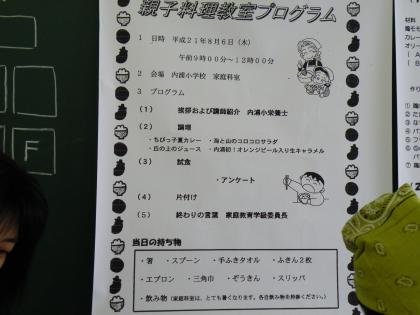 親子料理教室プログラム
1 日時 平成21年8月6日(木)
午前9時00分~12時00分
2 会場 内浦小学校 家庭科室
3 プログラム
(1) 挨拶および講師紹介 内浦小栄養士
(2) 調理
・ちびっ子夏カレー ・海と山のコロコロサラダ
・丘の上のジュース ・内浦初!オレンジピール入り生キャラメル
(3) 試食
・アンケート
(4) 片付け
(5) 終わりの言葉 家庭教育学級委員長
当日の持ち物
・箸 ・スプーン ・手ふきタオル ・ふきん2枚
・エプロン ・三角巾 ・ぞうきん ・スリッパ
・飲み物(家庭科室は、とても暑くなります。各自飲み物を持参ください。)
F
材料
カレー
オリー
作り
2